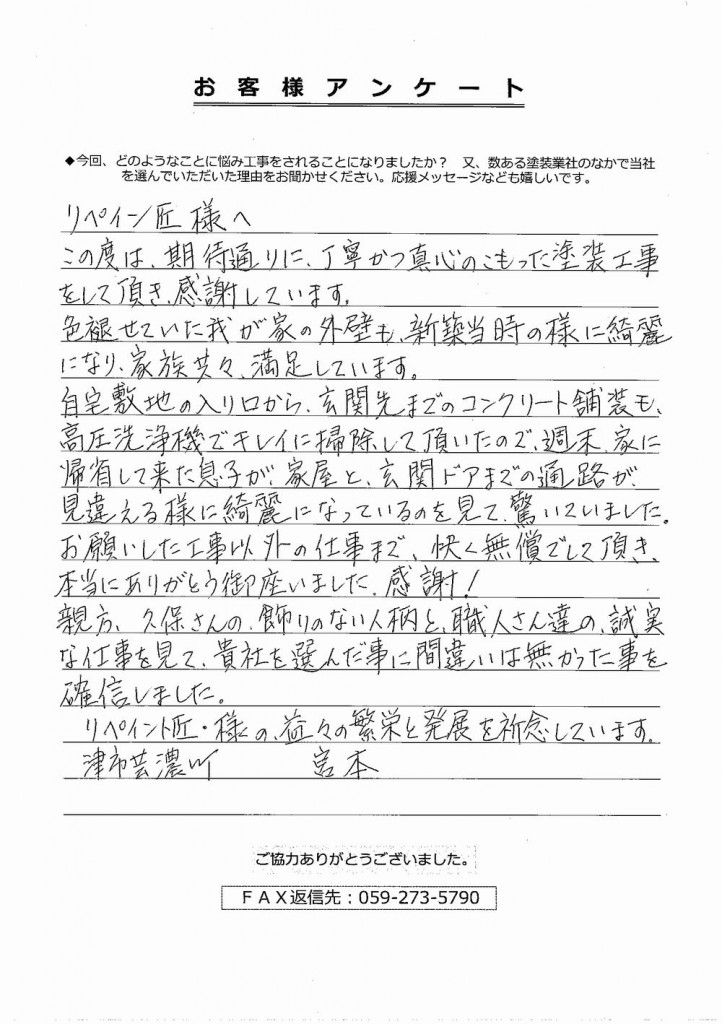 お客様アンケート
◆今回、どのようなことに悩み工事をされることになりましたか？ 又、数ある塗装業社のなかで当社
を選んでいただいた理由をお聞かせください。応援メッセージなども嬉しいです。
リペイント匠様へ
この度は、期待通りに、丁寧かつ真心のこもった塗装工事
をして頂き、感謝しています。
色褪せていた我が家の外壁も、新築当時の様に綺麗
になり、家族共々、満足しています。
自宅敷地の入り口から、玄関先までのコンクリート舗装も、
高圧洗浄機でキレイに掃除して頂いたので、週末、家に
帰省して来た息子が、家屋と、玄関ドアまでの通路が、
見違える様に綺麗になっているのを見て、驚いていました。
お願いした工事以外の仕事まで、快く無償でして頂き、
本当にありがとう御座いました。感謝！
親方、久保さんの、飾りのない人柄と、職人さん達の、誠実
な仕事を見て、貴社を選んだ事に間違いは無かった事を
確信しました。
リペイント匠・様の、益々の繁栄と発展を祈念しています。
津市芸濃町 宮本
ご協力ありがとうございました。
ＦＡＸ返信先：059-273-5790